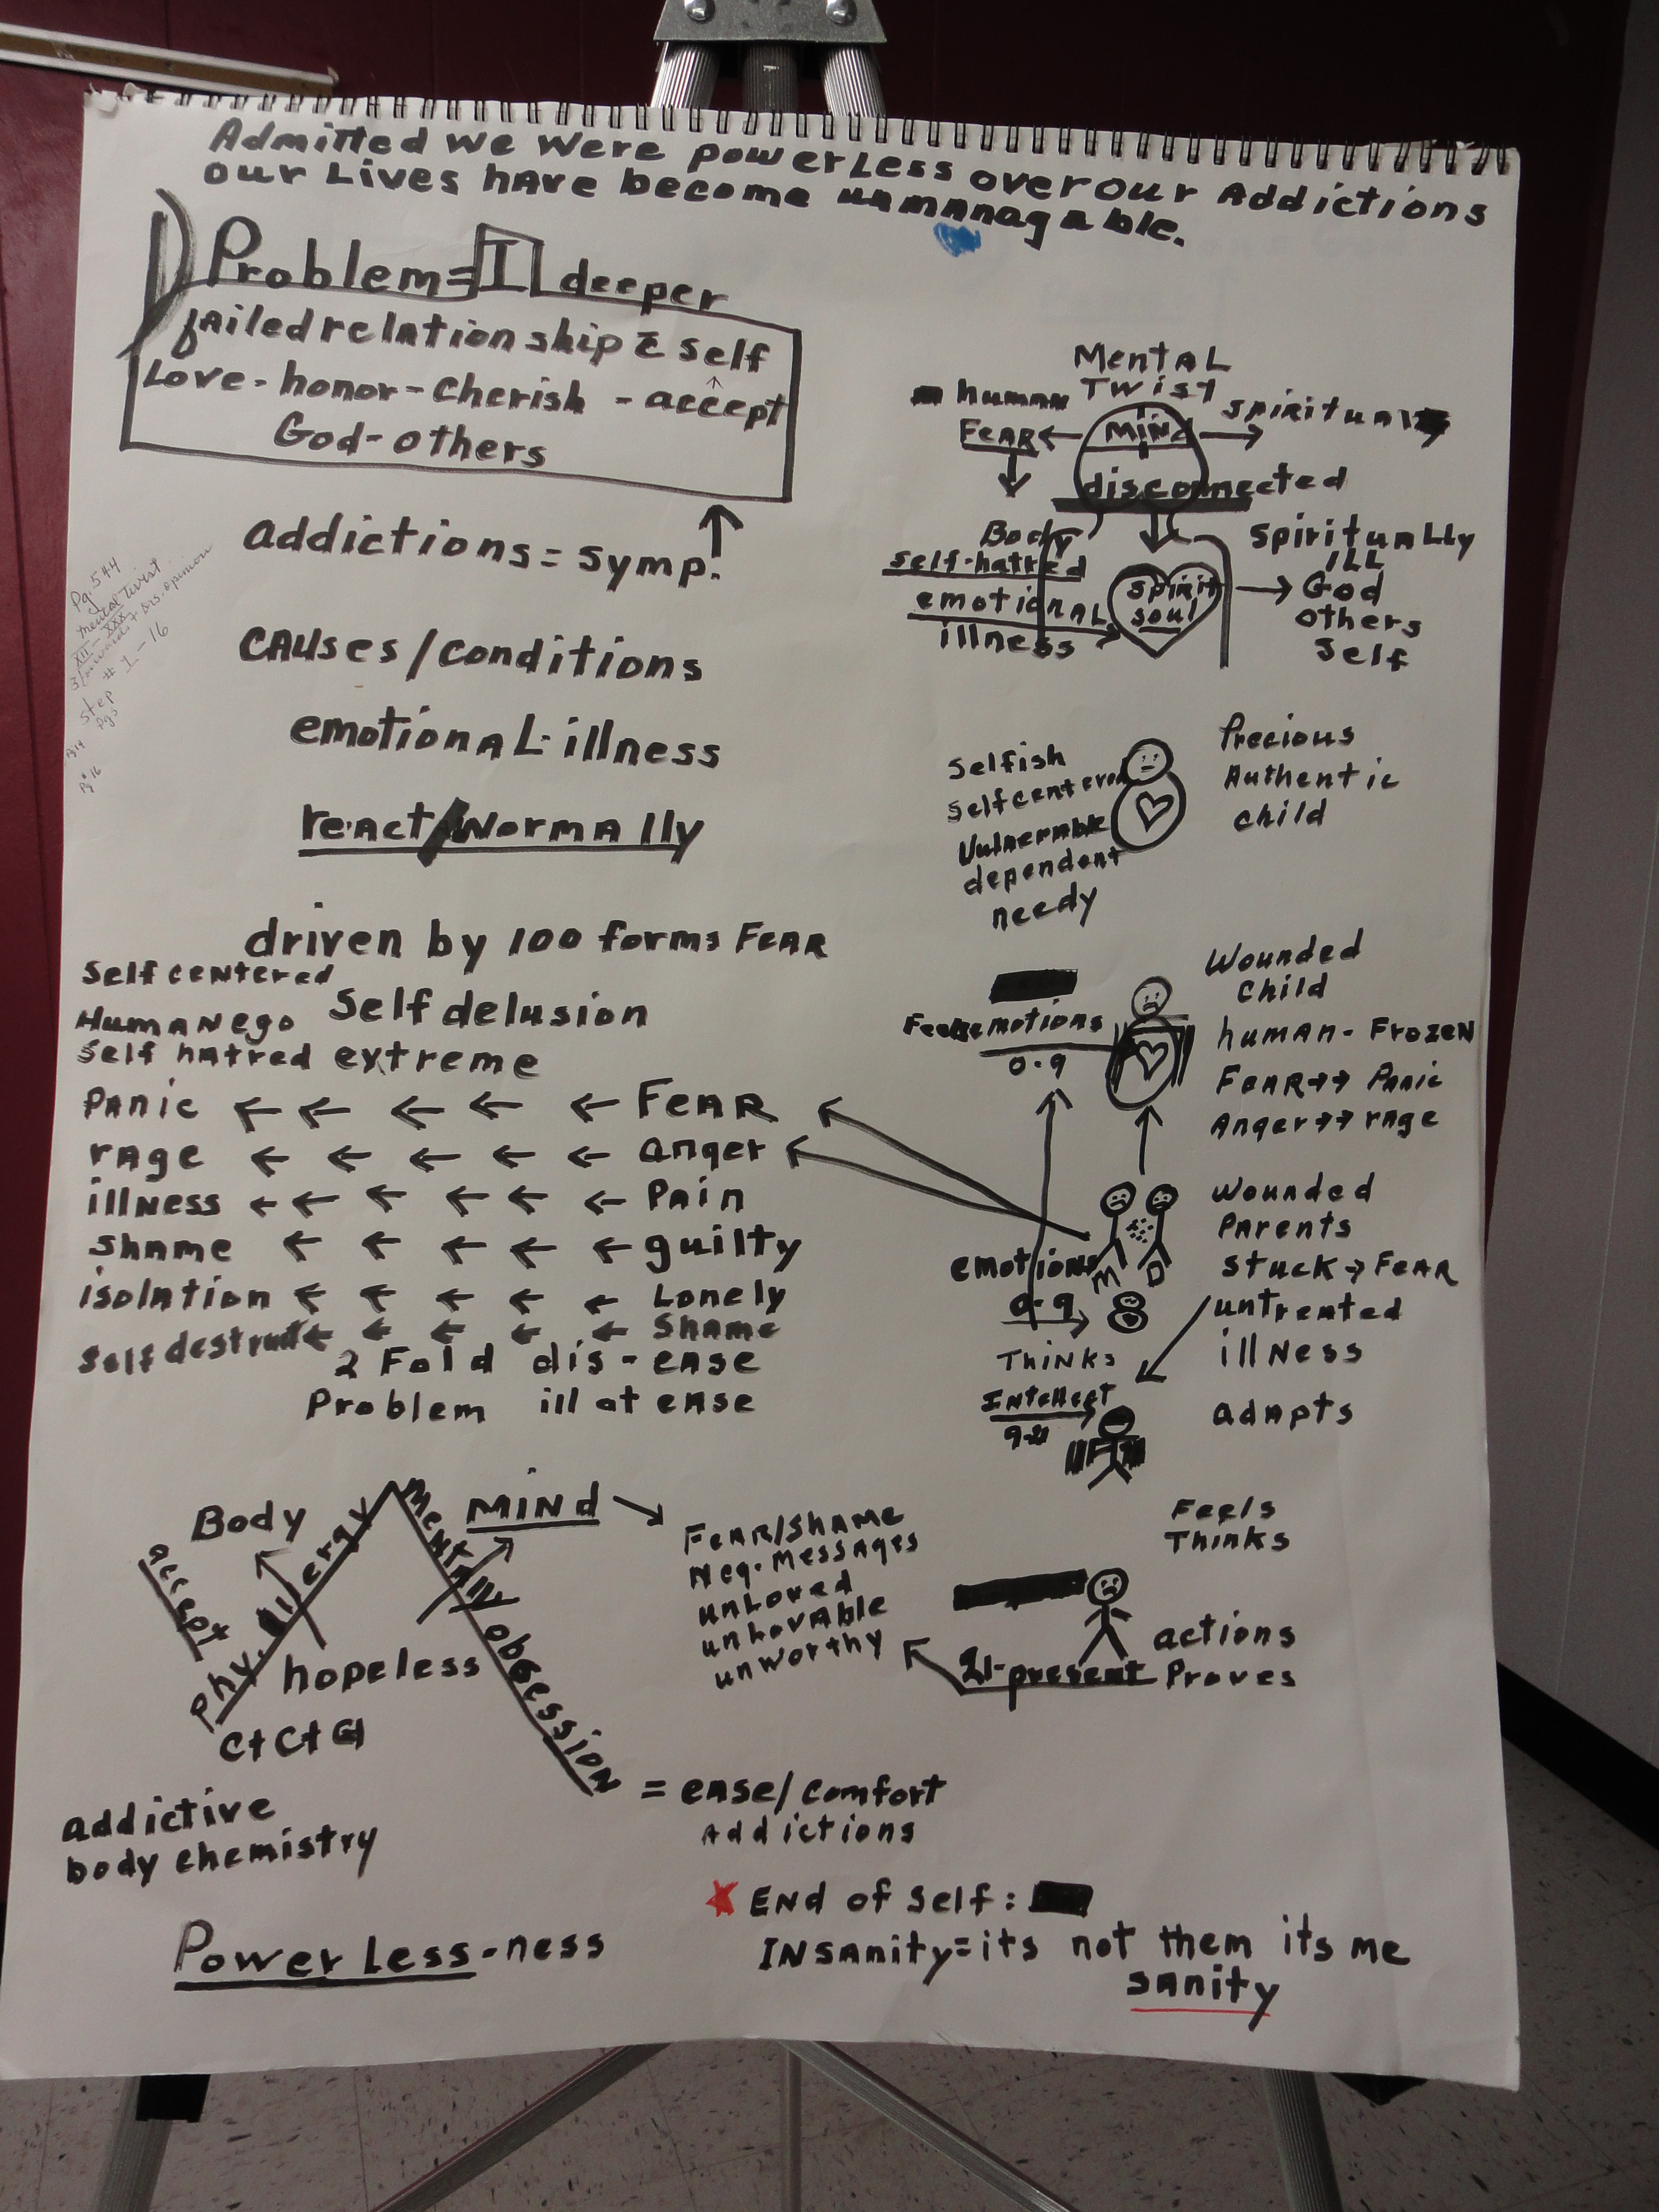 Admitted we were powerless over our Addictions
our Lives have become unmanagable.
Problem = I deeper
failed relationship c̄ self
Love - honor - Cherish - accept
God - others
addictions = symp.
Causes/conditions
emotional illness
react/Normally
driven by 100 forms Fear
Self centered
Human ego Self delusion
Self hatred extreme
Panic ← ← ← ← ← Fear
rage ← ← ← ← ← anger
illness ← ← ← ← ← ← Pain
shame ← ← ← ← ← guilty
isolation ← ← ← ← ← Lonely
Self destruct ← ← ← ← ← Shame
2 Fold dis-ease
Problem ill at ease
Body
accept
Phy. Allergy
Mental obsession
MINd
hopeless
C+C+G
addictive
body chemistry
Power Less-ness
Pg. 544
mental twist
XII - XXX
Drs. opinion
# 1-16
step
Pg 5
Pg 14
Pg 16
Mental
Twist
human
spiritual
Fear ← MINd →
disconnected
Body
self-hatred
emotional
illness
spirit
soul
spiritually
ILL
God
others
Self
Selfish
Self centered
Vulnerable
dependent
needy
Precious
Authentic
child
Wounded
child
emotions
0-9
human - Frozen
Fear →→ Panic
Anger →→ rage
Wounded
Parents
stuck → Fear
untreated
illness
adapts
emotions
M D
0-9
Thinks
Intellect
9-21
Feels
Thinks
actions
Proves
21-present
Fear/shame
Neg. Messages
unLoved
unLovable
unworthy
= ease/comfort
Addictions
End of Self:
INsanity = its not them its me
sanity